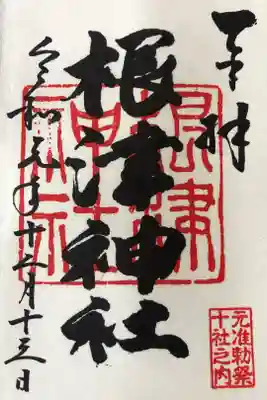 奉拝
根津神社
根津神社
元准勅祭
十社之内
令和元年十二月十三日